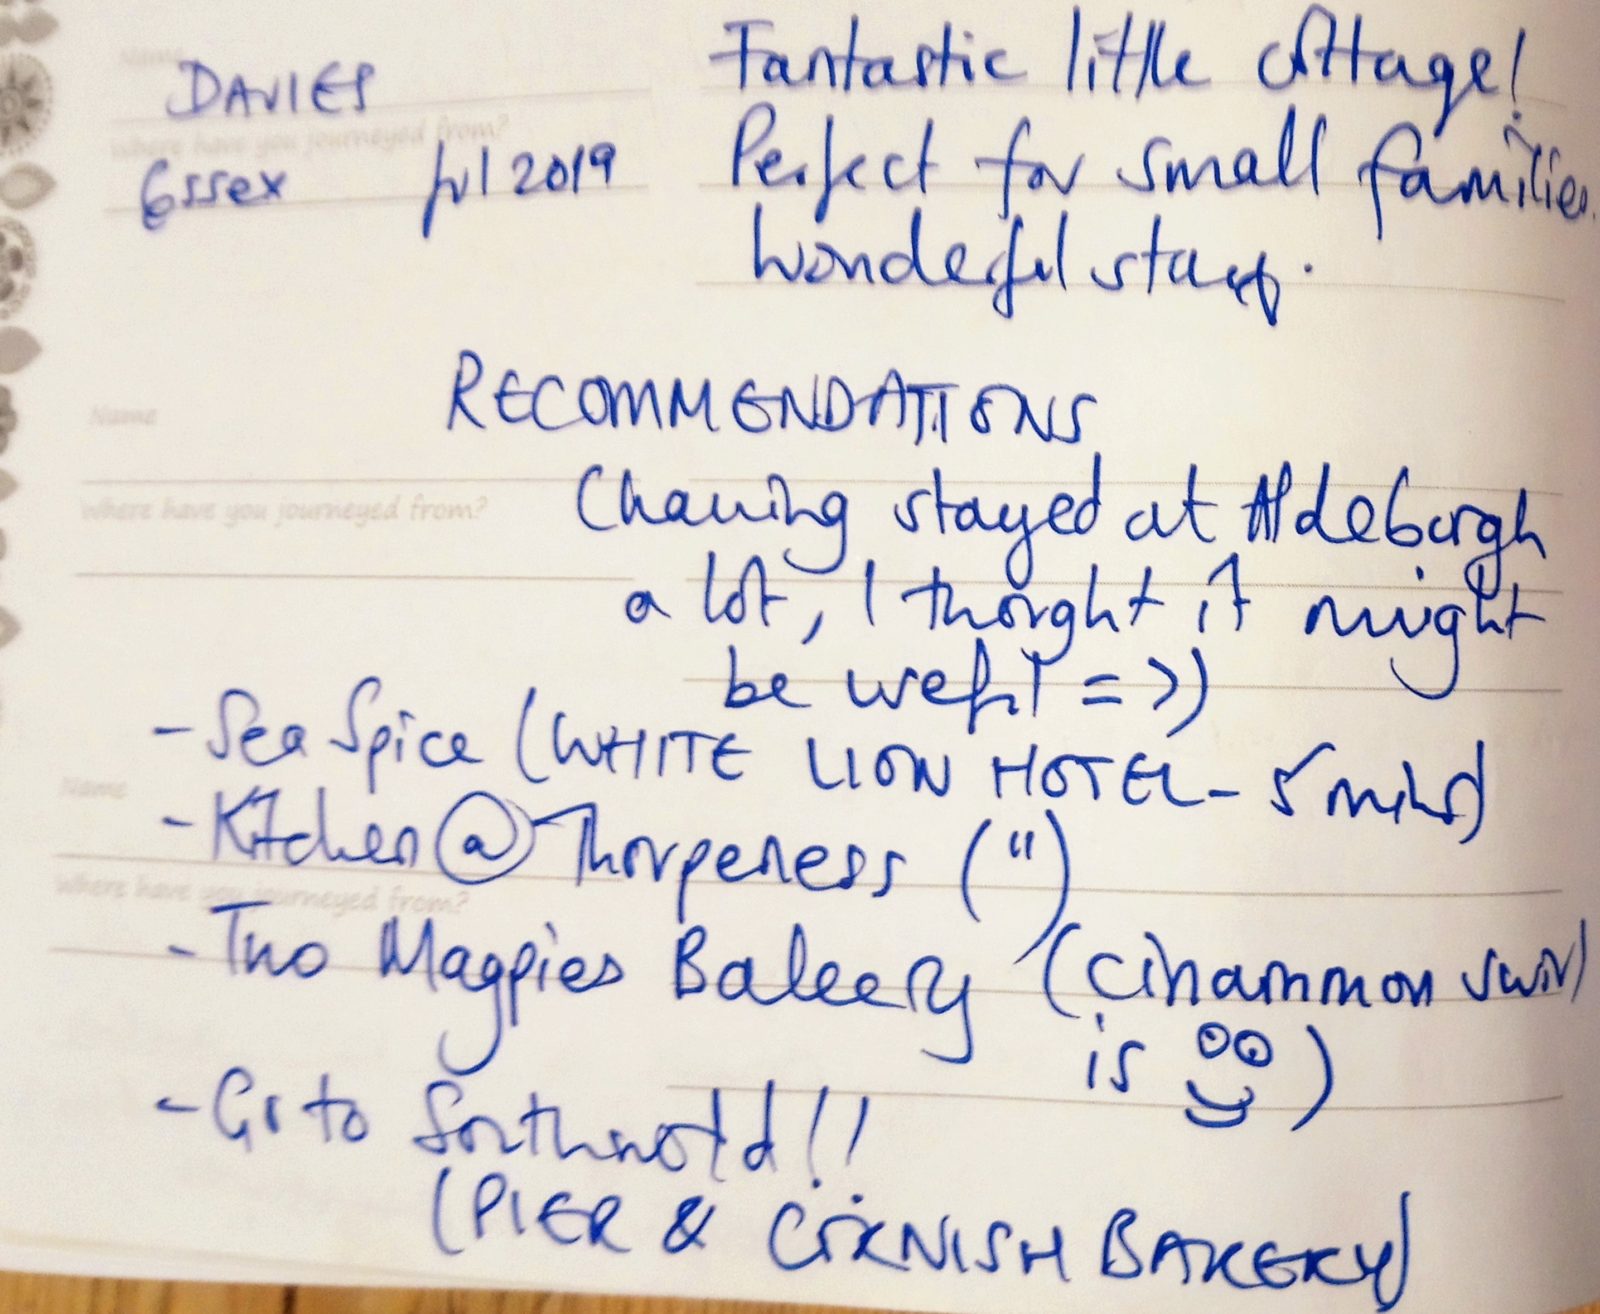 Name
DAVIES
Where have you journeyed from?
Essex Jul 2019
Fantastic little cottage!
Perfect for small families.
Wonderful stay.
RECOMMENDATIONS
Name
(having stayed at Aldeburgh
Where have you journeyed from?
a lot, I thought it might
be useful => )
- Sea Spice (WHITE LION HOTEL - 5 mins)
Name
- Kitchen @ Thorpeness (")
Where have you journeyed from?
- Two Magpies Bakery (cinammon swirl
is 🙂)
- Go to Southwold!!
(PIER & CORNISH BAKERY)